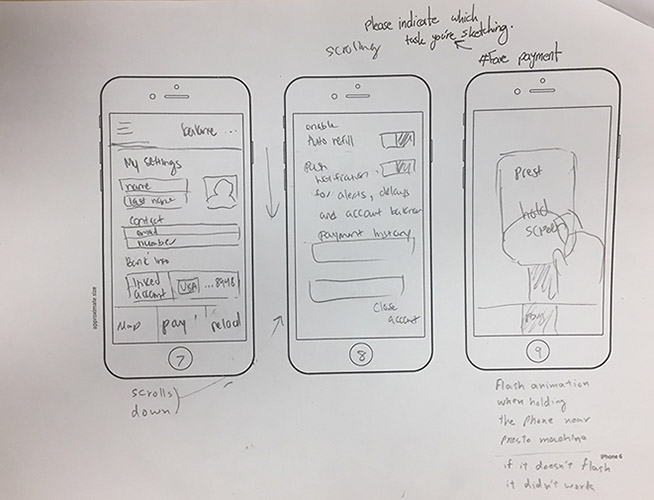 Please indicate which
task you're sketching.
scrolling
#Fare payment
balance ...
My settings
name
last name
Contact
email
number
Bank info
linked
account
VISA
...8948
Map
pay
reload
7
scrolls
down
enable
Auto refill
Push
notification
for alerts, delays
and account balance
payment history
Close
account
8
prest
hold
9
Flash animation
when holding
the phone near
presto machine
if it doesn't flash
it didn't work
approximate size
iPhone 6